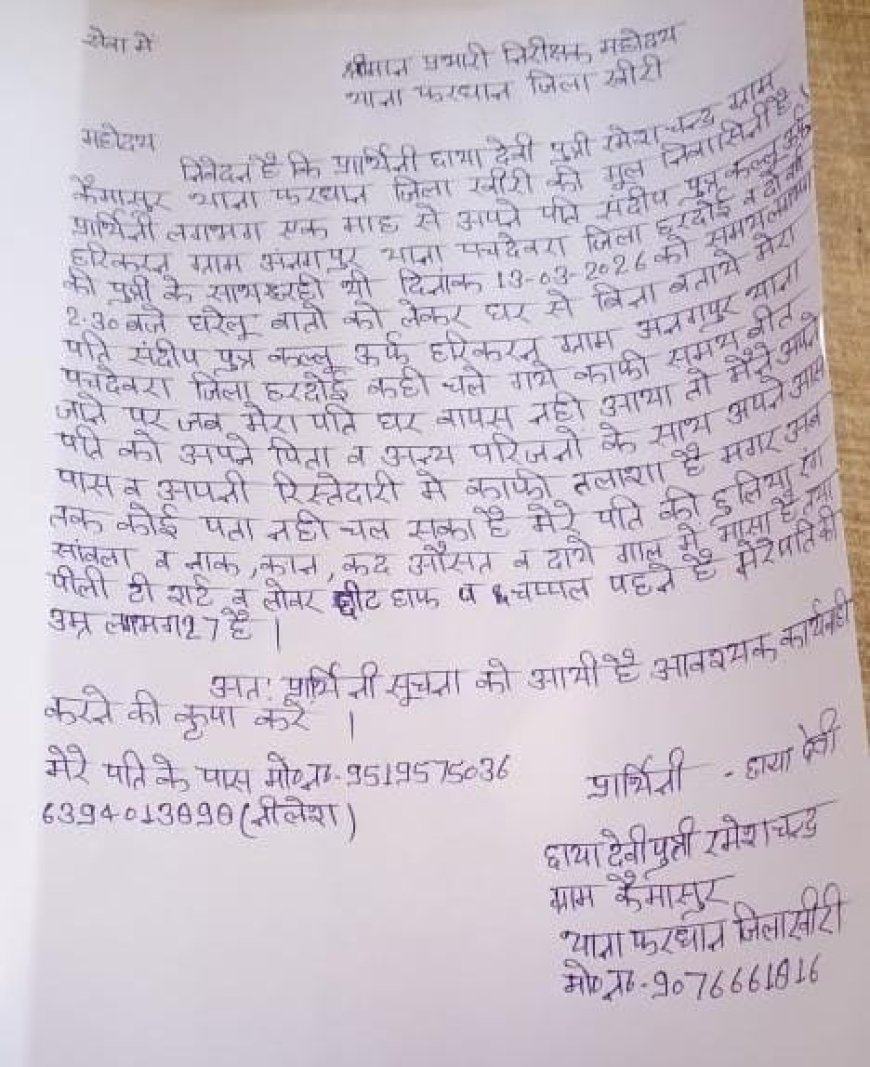 सेवा में
श्रीमान प्रभारी निरीक्षक महोदय
थाना फरधान जिला खीरी
महोदय
निवेदन है कि प्रार्थिनी छाया देवी पुत्री रमेश चन्द्र ग्राम
कैमासुर थाना फरधान जिला खीरी की मूल निवासिनी है।
प्रार्थिनी लगभग एक माह से अपने पति संदीप पुत्र कल्लू उर्फ
हरिकरन ग्राम अनंगपुर थाना पचदेवरा जिला हरदोई व दो
की पुत्री के साथ रही थी दिनांक 13-03-2026 को समय लगभग
2:30 बजे घरेलू बातो को लेकर घर से बिना बताये मेरा
पति संदीप पुत्र कल्लू उर्फ हरिकरन ग्राम अनगपुर थाना
पचदेवरा जिला हरदोई कही चले गये काफी समय बीत
जाने पर जब मेरा पति घर वापस नही आया तो मैने अपने
पति को अपने पिता व अन्य परिजनो के साथ अपने आस
पास व अपनी रिस्तेदारी मे काफी तलाशा है मगर अब
तक कोई पता नही चल सका है मेरे पति की हुलिया रंग
सांवला व नाक, कान, कद औसत व दाये गाल मे मासा है तथा
पीली टी शर्ट व लोवर हाफ व चप्पल पहने है मेरे पति की
उम्र लगभग 27 है।
अत: प्रार्थिनी सूचना को आयी है आवश्यक कार्यवाही
करने की कृपा करे।
मेरे पति के पास मो० न०-9519575036
6394013898 (नीलेश)
प्रार्थिनी - छाया देवी
छाया देवी पुत्री रमेश चन्द्र
ग्राम कैमासुर
थाना फरधान जिला खीरी
मो० न०-9076661816